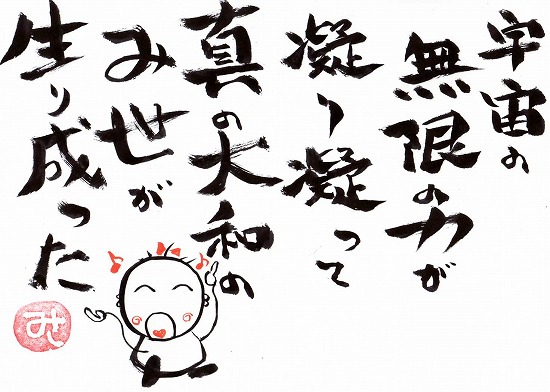 宇宙の
無限の力が
凝り凝って
真の大和の
み世が
生り成った
み